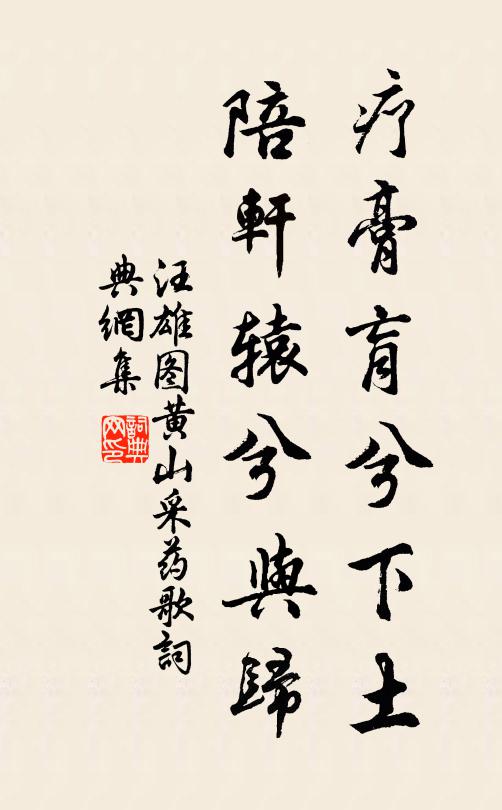 疗膏肓兮下土
陪軒辕兮與歸
汪雄图黄山采药歌詞
典網集
詞典
网印